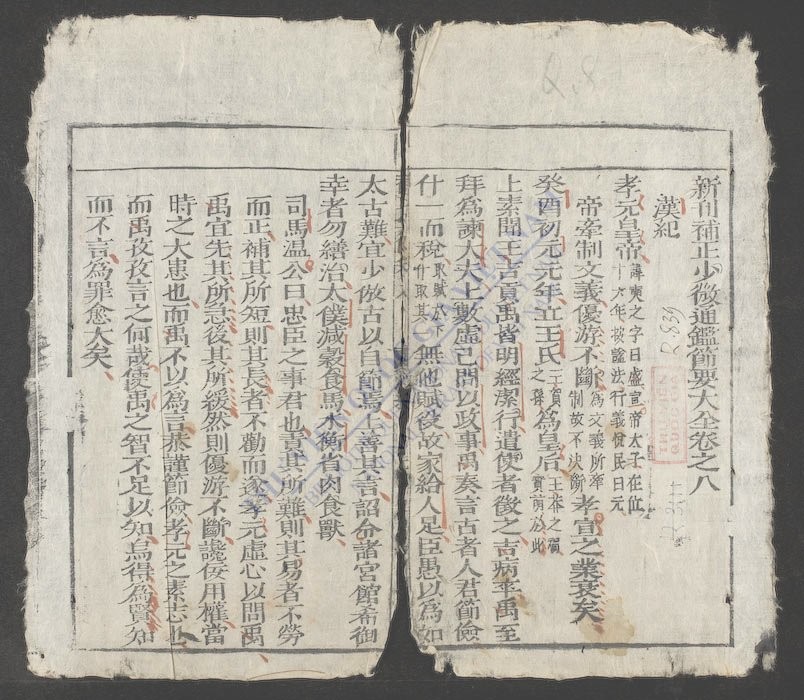 新刊補正少微通鑑節要大全卷之八
漢紀
孝元皇帝 諱奭之字曰盛宣帝太子在位十六年按諡法行義悅民曰元
帝牽制文義優游不斷 為文義所牽制故不決斷 孝宣之業衰矣
癸酉初元元年立王氏 王賀之孫 為皇后 王莽之禍實萌於此
上素聞王吉貢禹皆明經潔行遣使者徵之吉病卒禹至
拜為諫大夫上數虛己問以政事禹奏言古者人君節儉
什一而稅 無他賦役故家給人足臣愚以為如
太古難宜少倣古以自節焉上善其言詔令諸宮館希御
幸者勿繕治太僕減穀食馬水衡省肉食獸
司馬溫公曰忠臣之事君也責其所難則其易者不勞
而正補其所短則其長者不勸而遂孝元虛心以問禹
禹宜先其所急後其所緩然則優游不斷讒佞用權當
時之大患也而禹不以為言恭謹節儉孝元之素志也
而禹孜孜言之何哉使禹之智不足以知烏得為賢知
而不言為罪愈大矣
R.839